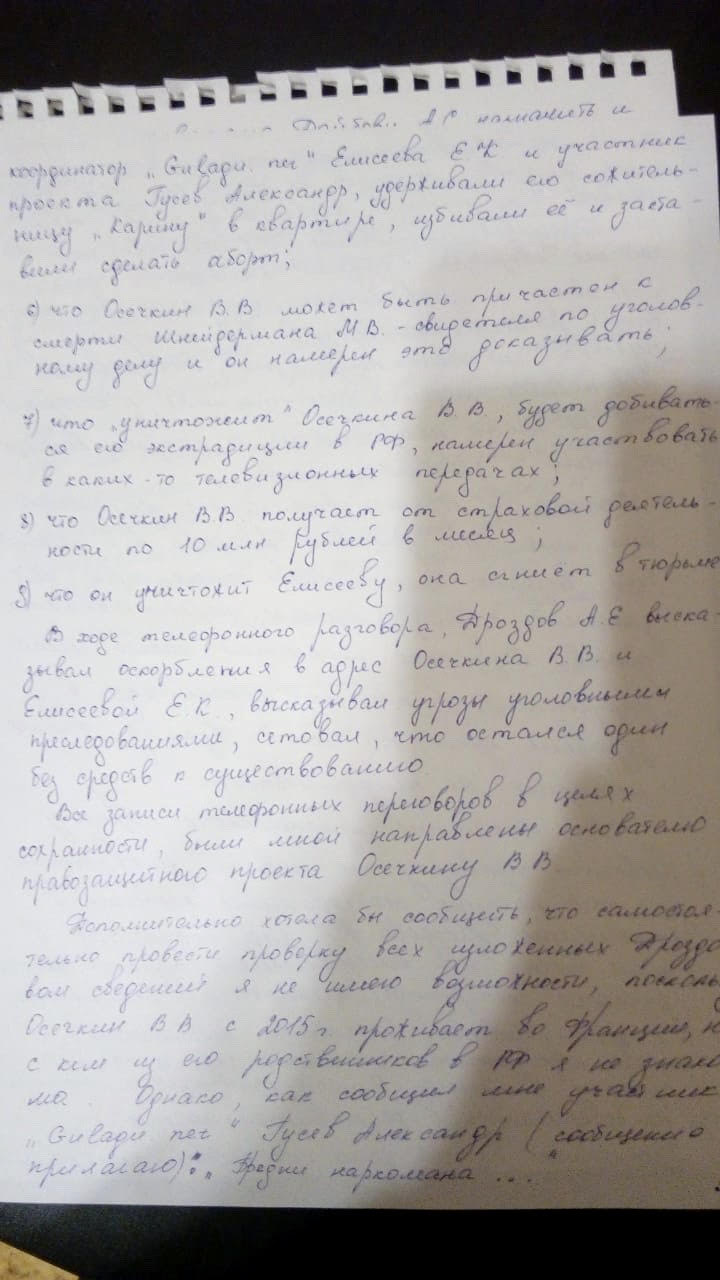 А.С
координатор „Gulagu. net" Елисеева Е К и участник
проекта Гусев Александр, удерживали его сожитель-
ницу „Карину" в квартире, избивали её и заста-
вили сделать аборт;
6) что Осечкин В.В может быть причастен к
смерти Шнейдермана М.В. - свидетеля по уголов-
ному делу и он намерен это доказывать;
7) что „уничтожит" Осечкина В.В., будет добивать-
ся его экстрадиции в РФ, намерен участвовать
в каких-то телевизионных передачах;
8) что Осечкин В.В. получает от страховой деятель-
ности по 10 млн рублей в месяц;
9) что он уничтожит Елисееву, она сгниет в тюрьме
В ходе телефонного разговора, Дроздов А.Е выска-
зывал оскорбления в адрес Осечкина В.В. и
Елисеевой Е.К., высказывал угрозы уголовными
преследованиями, сетовал, что остался один
без средств к существованию.
Все записи телефонных переговоров в целях
сохранности, были мной направлены основателю
правозащитного проекта Осечкину В В.
Дополнительно хотела бы сообщить, что самостоя-
тельно провести проверку всех изложенных Дроздо
вом сведений я не имею возможности, посколь
Осечкин В В с 2015 г. проживает во Франции, н
с кем из его родственников в РФ я не знако
ма. Однако, как сообщил мне участник
„Gulagu net" Гусев Александр (сообщение
прилагаю): „Бредни наркомана ...